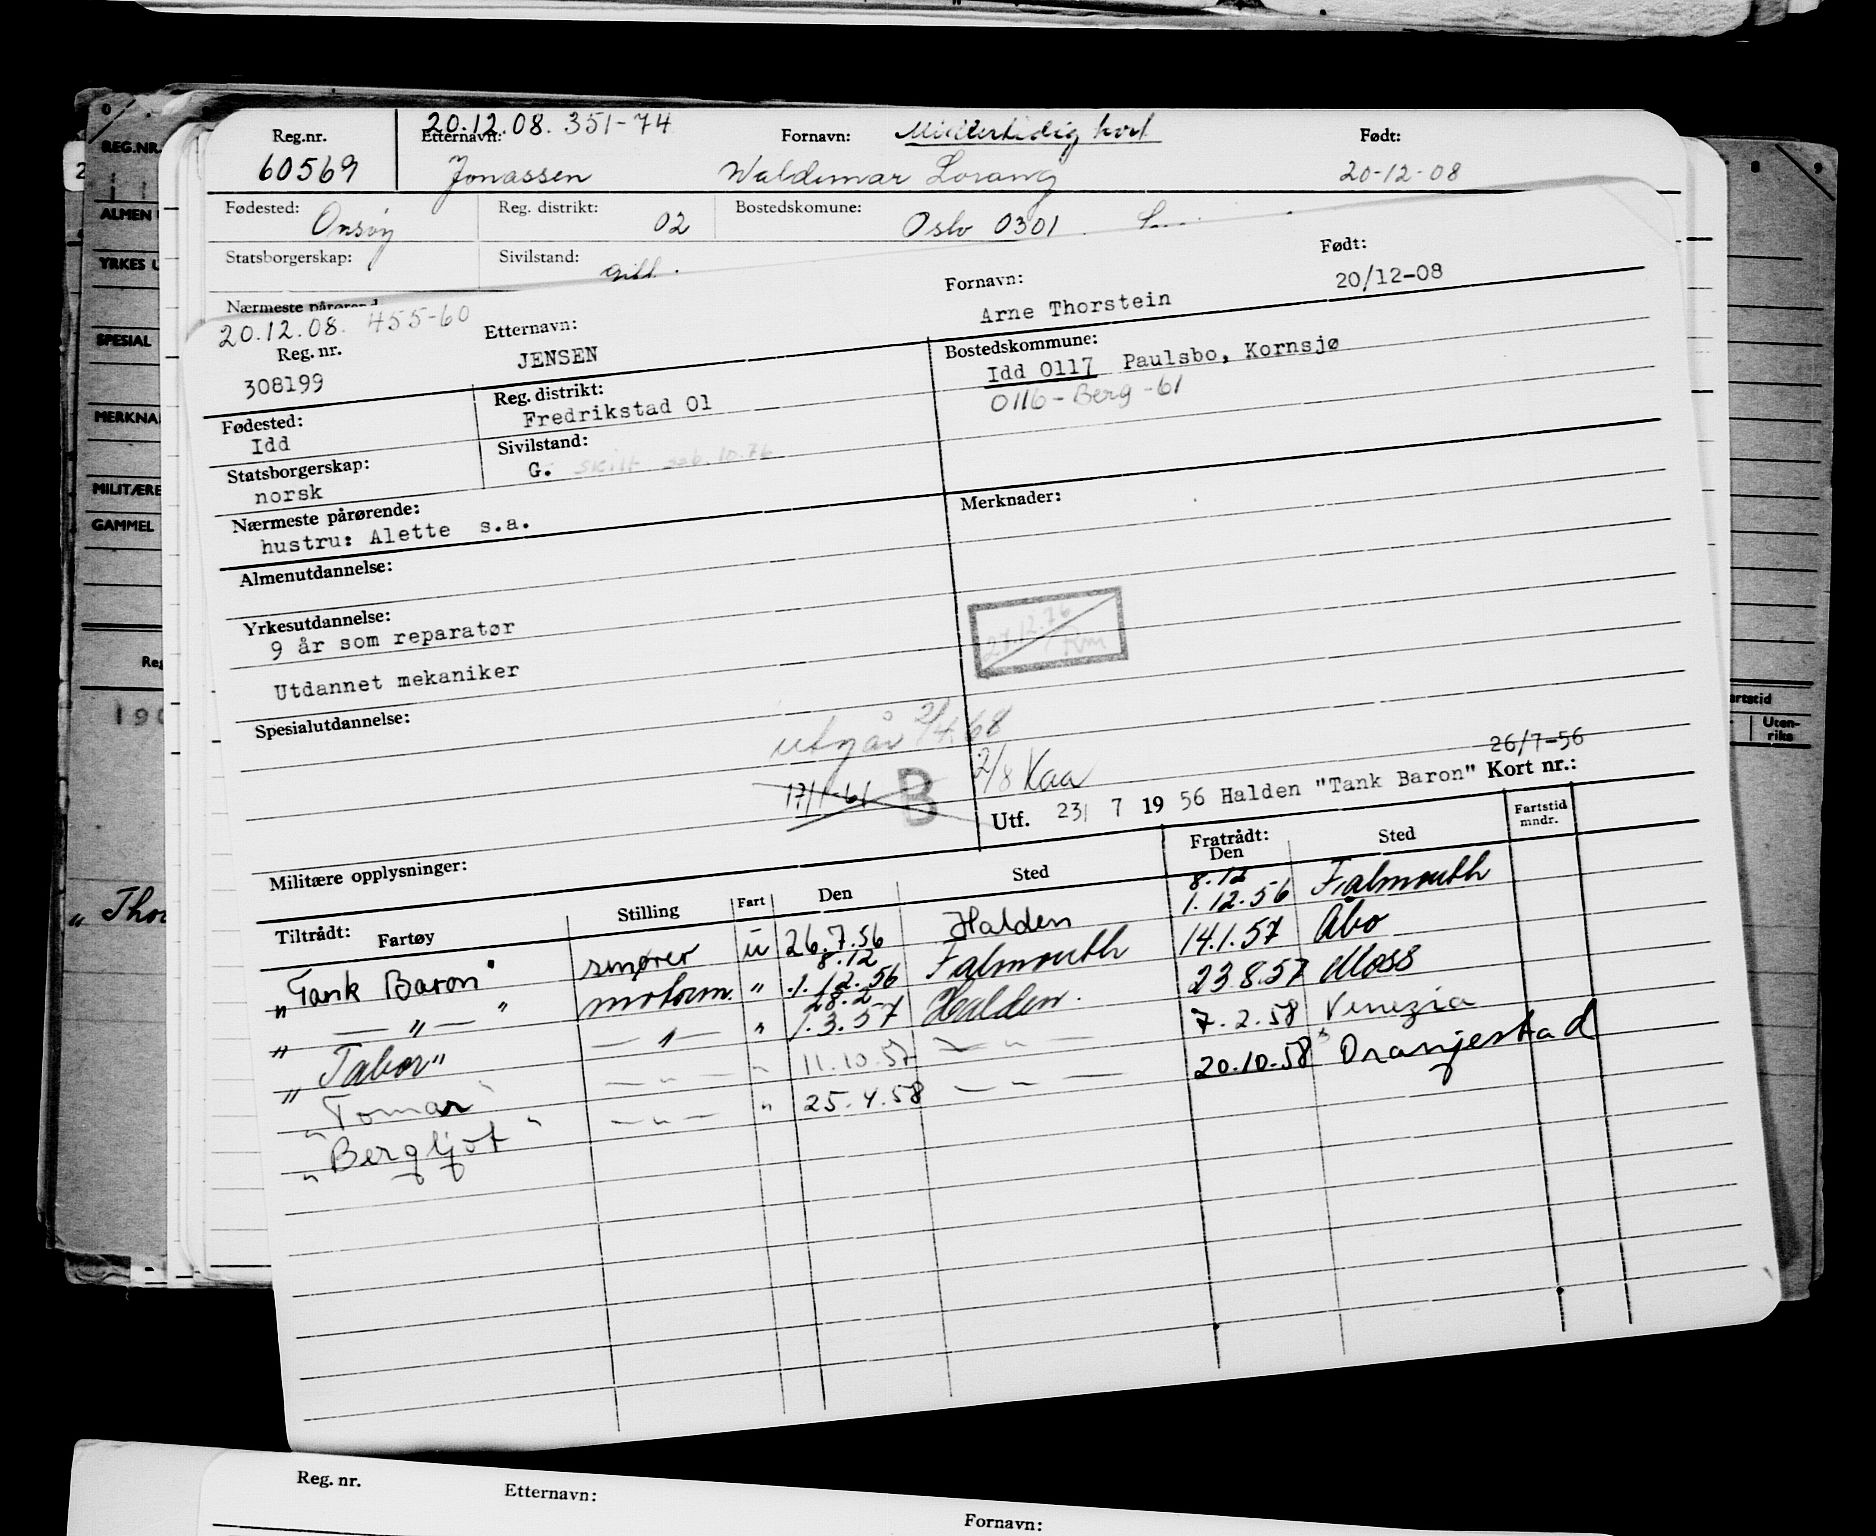 Reg.nr. 20.12.08. 351-74 Etternavn: Fornavn: Midlertidig kort Født:
60569 Jonassen Waldemar Lorang 20-12-08
Fødested: Onsøy Reg. distrikt: 02 Bostedskomune: Oslo 0301
Statsborgerskap: Sivilstand: gift.
Nærmeste pårørend
REG.NR.
ALMEN
YRKES U
SPESIAL
MERKNA
MILITÆRE
GAMMEL
Reg
190
" Thor
8 9
artstid
Uten-
riks
20.12.08. 455-60
Reg. nr. Etternavn: Fornavn: Født:
308199 JENSEN Arne Thorstein 20/12-08
Fødested: Reg. distrikt: Bostedskommune:
Idd Fredrikstad 01 Idd 0117 Paulsbo, Kornsjø
0116 - Berg -61
Statsborgerskap: Sivilstand:
norsk G. skilt sep. 10.76
Nærmeste pårørende: Merknader:
hustru: Alette s.a.
Almenutdannelse:
Yrkesutdannelse:
9 år som reparatør
27.12.76
Utdannet mekaniker
Spesialutdannelse:
utgår 2/4.68
2/8 Kaa
17/1-61 B
26/7-56
Utf. 23/ 7 19 56 Halden "Tank Baron" Kort nr.:
Militære opplysninger:
Tiltrådt: Fartøy Stilling Fart Den Sted Fratrådt: Den Sted Fartstid mndr.
"Tank Baron" smører u 26.7.56 Halden 8.12 1.12.56 Falmouth
" — " — " motorm. " 8.12 1.12.56 Falmouth 14.1.57 Åbo
" Tabor" — " — " 28.2 1.3.57 Halden. 23.8.57 Moss
" Tomar " — " — " 11.10.57 — " — 7.2.58 Venezia
" Bergljot " — " — " 25.4.58 — " — 20.10.58 Oranjestad
Reg. nr. Etternavn: Fornavn: